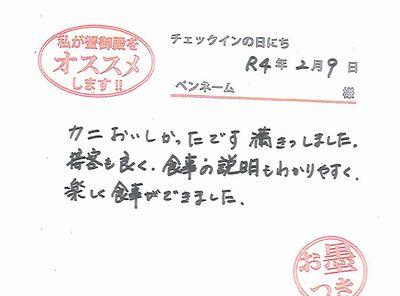 私が蟹御殿を
オススメ
します!!
チェックインの日にち
R4年2月9日
ペンネーム 様
カニおいしかったです 満きつしました。
接客も良く、食事の説明もわかりやすく、
楽しく食事ができました。
お墨
つき